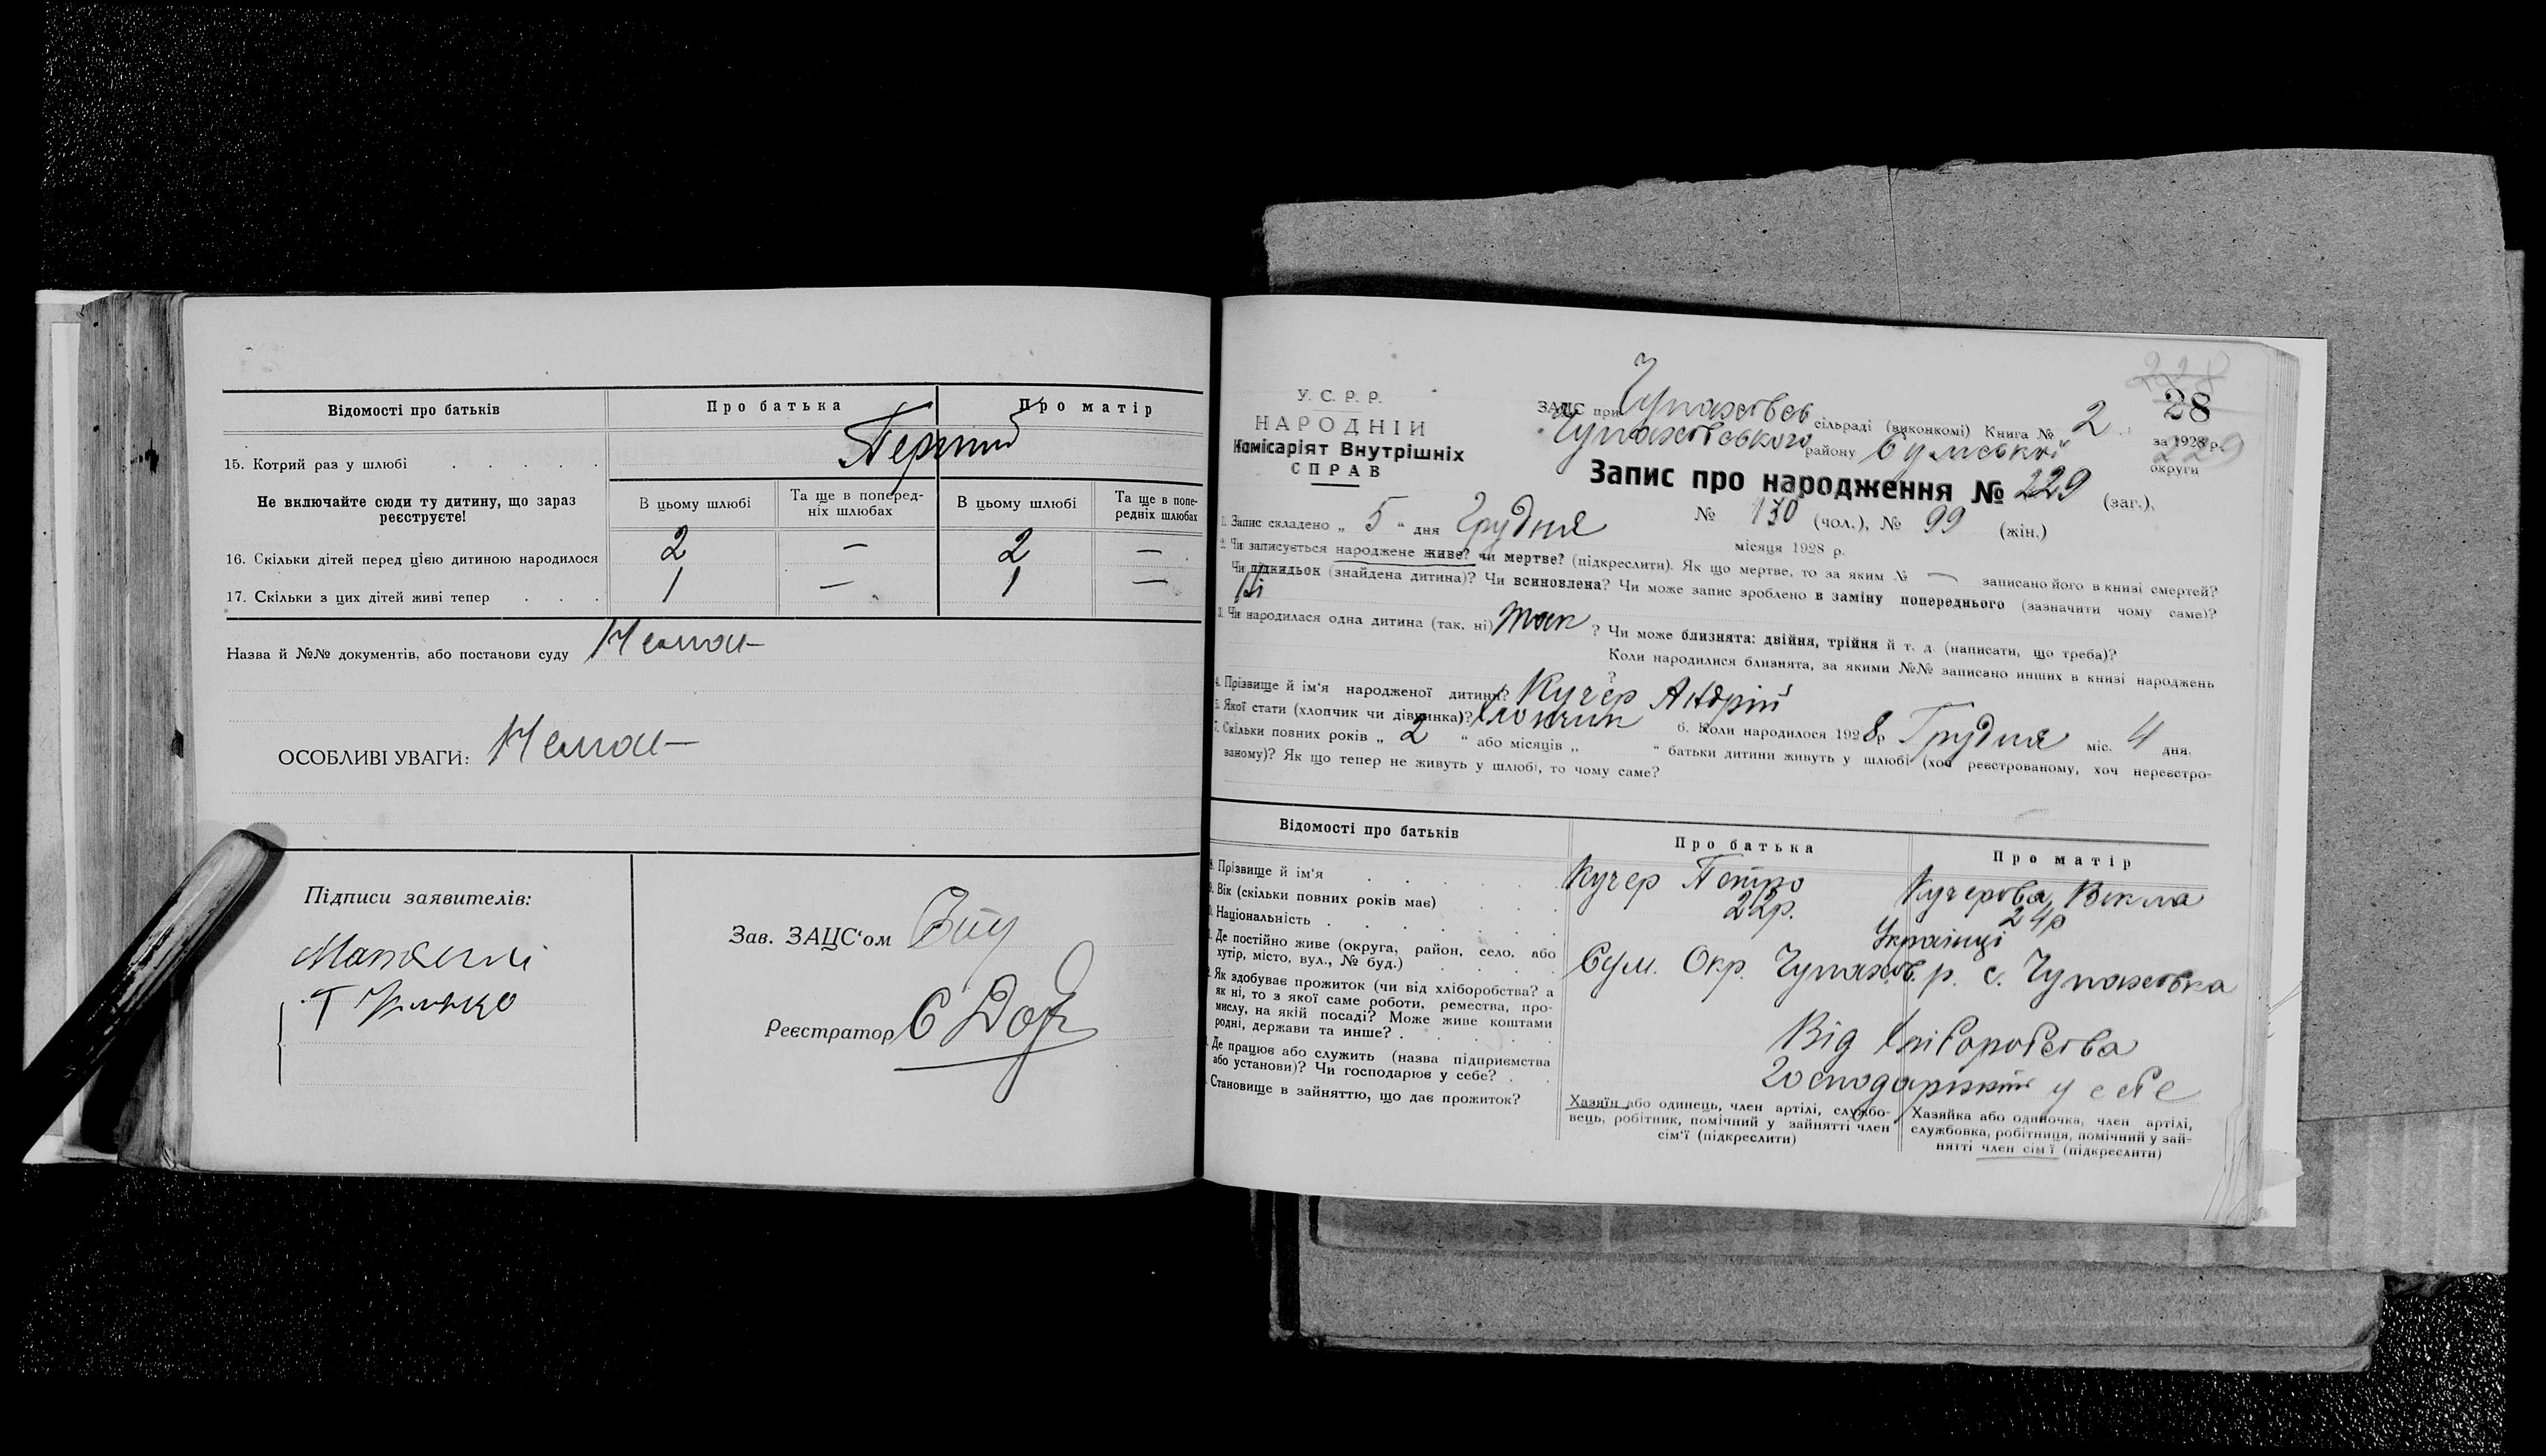 Відомості про батьків
Про батька
Про матір
15. Котрий раз у шлюбі
Перший
Не включайте сюди ту дитину, що зараз реєструєте!
В цьому шлюбі
Та ще в поперед-
ніх шлюбах
В цьому шлюбі
Та ще в попе-
редніх шлюбах
16. Скільки дітей перед цією дитиною народилося 2 — 2 —
17. Скільки з цих дітей живі тепер 1 — 1 —
Назва й №№ документів, або постанови суду Немає
ОСОБЛИВІ УВАГИ: Немає
Підписи заявителів:
Зав. ЗАЦС'ом
Реєстратор
228
У. С. Р. Р.
НАРОДНІЙ
Комісаріят Внутрішніх
СПРАВ
28
ЗАЦС при Чупахівсь сільраді (виконкомі) Книга № 2 за 1928 р.
Чупахівського району Сумської округи
229
Запис про народження № 229 (заг.),
№ 130 (чол.), № 99 (жін.)
1. Запис складено „ 5 “ дня Грудня місяця 1928 р.
2. Чи записується народжене живе? чи мертве? (підкреслити). Як що мертве, то за яким № — записано його в книзі смертей?
Чи підкидьок (знайдена дитина)? Чи всиновлена? Чи може запис зроблено в заміну попереднього (зазначити чому саме)?
Ні
3. Чи народилася одна дитина (так, ні) так ? Чи може близнята: двійня, трійня й т. д. (написати, що треба)?
? Коли народилися близнята, за якими №№ записано инших в книзі народжень
4. Прізвище й ім'я народженої дитини? Кучер Андрій
5. Якої стати (хлопчик чи дівчинка)? Хлопчик 6. Коли народилося 1928 р. Грудня міс. 4 дня.
7. Скільки повних років „ 2 “ або місяців „ “ батьки дитини живуть у шлюбі (хоч реєстрованому, хоч нереєстро-
ваному)? Як що тепер не живуть у шлюбі, то чому саме?
Відомості про батьків
Про батька
Про матір
8. Прізвище й ім'я Кучер Петро Кучерова Векла
9. Вік (скільки повних років має) 22р. 24р
10. Національність Українці
11. Де постійно живе (округа, район, село, або
хутір, місто, вул., № буд.)
Сум. Окр. Чупахів. р. с. Чупахівка
12. Як здобуває прожиток (чи від хліборобства? а
як ні, то з якої саме роботи, ремества, про-
мислу, на якій посаді? Може живе коштами
родні, держави та инше?
Від хліборобства
13. Де працює або служить (назва підприємства
або установи)? Чи господарює у себе?
у себе
14. Становище в зайняттю, що дає прожиток?
Хазяїн або одинець, член артілі, службо-
вець, робітник, помічний у зайнятті член
сім'ї (підкреслити)
Хазяйка або одиночка, член артілі,
службовка, робітниця, помічний у зай-
нятті член сім'ї (підкреслити)